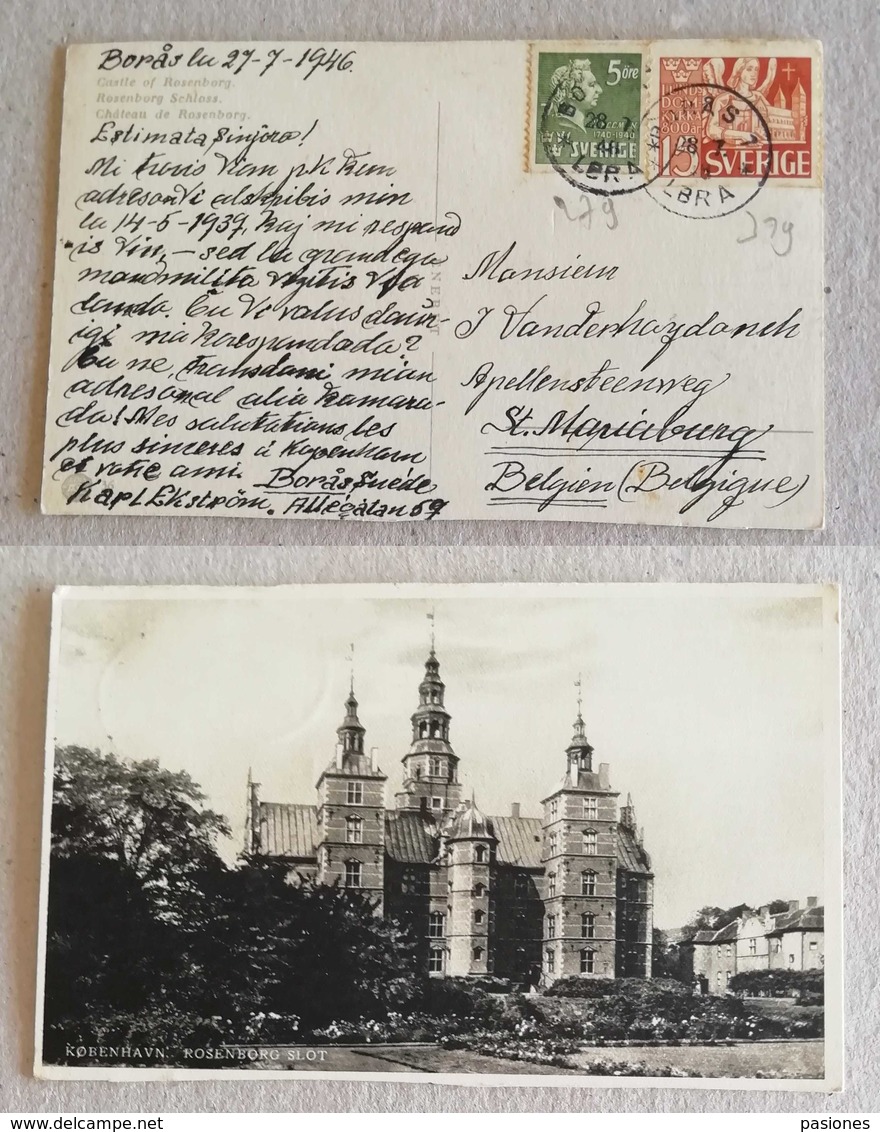 Borås la 27-7-1946.
Castle of Rosenborg.
Rosenborg Schloss.
Château de Rosenborg.
Estimata Sinjoro!
Mi trovis Vian pk kun
adreson Vi alskribis min
la 14-5-1937, kaj mi respond
is Vin, – sed la grandega
mondmilita Via
lando. Ĉu Vi volus daŭr-
igi mia korespondado?
Ĉu ne, transdoni mian
adreson al alia kamara-
do! Mes salutations les
plus sinceres à Kopenham
et votre ami. Borås Suède
Karl Ekström. Allégatan 59
5 öre
1740-1940
SVERIGE
LUNDS
DOM
KYRKA
800 ÅR
15 SVERIGE
28 7
LBRA
28 7
LBRA
279
279
Monsieur
J Vanderheydonck
Apellensteenweg
St. Mariaburg
Belgien (Belgique)
KØBENHAVN. ROSENBORG SLOT
pasiones